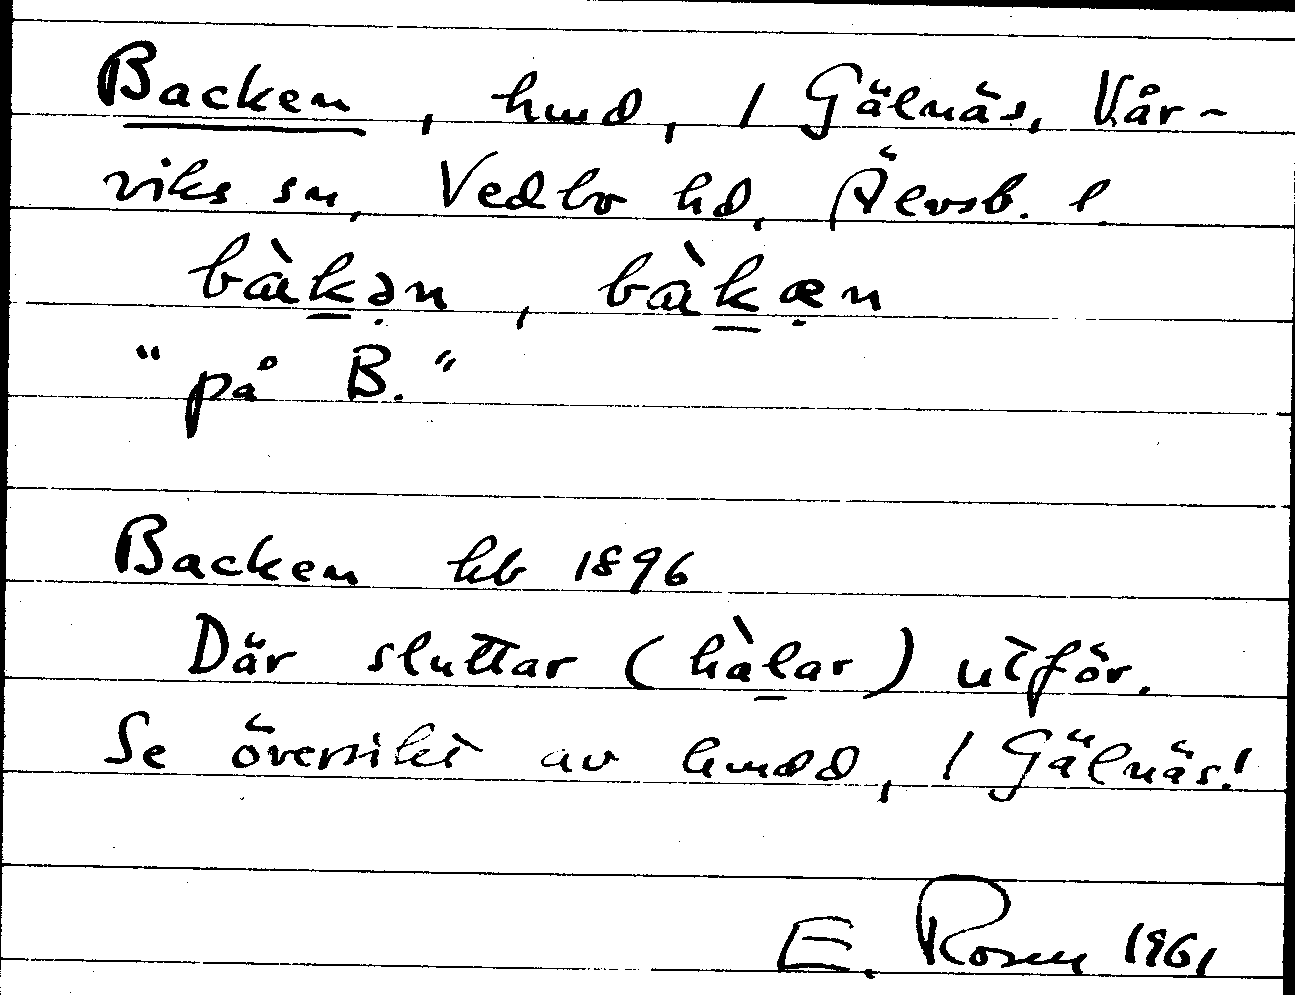 Backen, hmd, 1 Gälnäs, Vår-
viks sn, Vedbo hd, Älvsb. l.
bàk̲ə̣n, bàk̲æ̣n
"på B."
Backen hb 1896
Där sluttar (hàl̲ar) utför.
Se översikt av hmdd, 1 Gälnäs!
E. Rosen 1961